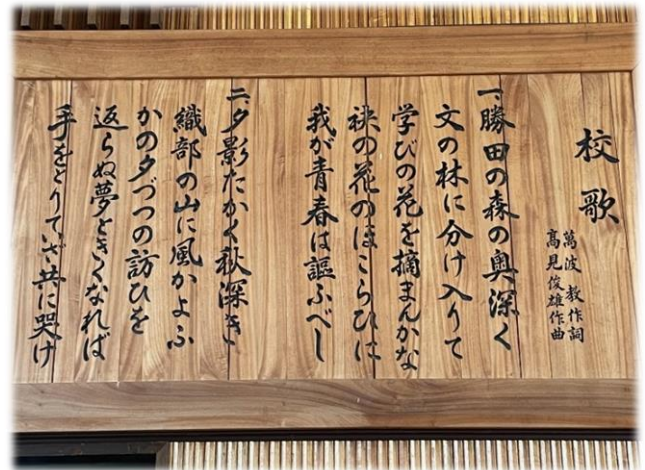 校歌
萬波 教作詞
高見俊雄作曲
一、勝田の森の奥深く
文の林に分け入りて
学びの花を摘まんかな
袂の花のほこらひに
我が青春は謳ふべし
二、夕影たかく秋深き
織部の山に風かよふ
かの夕づつの訪ひを
返らぬ夢ときくなれば
手をとりていざ共に哭け